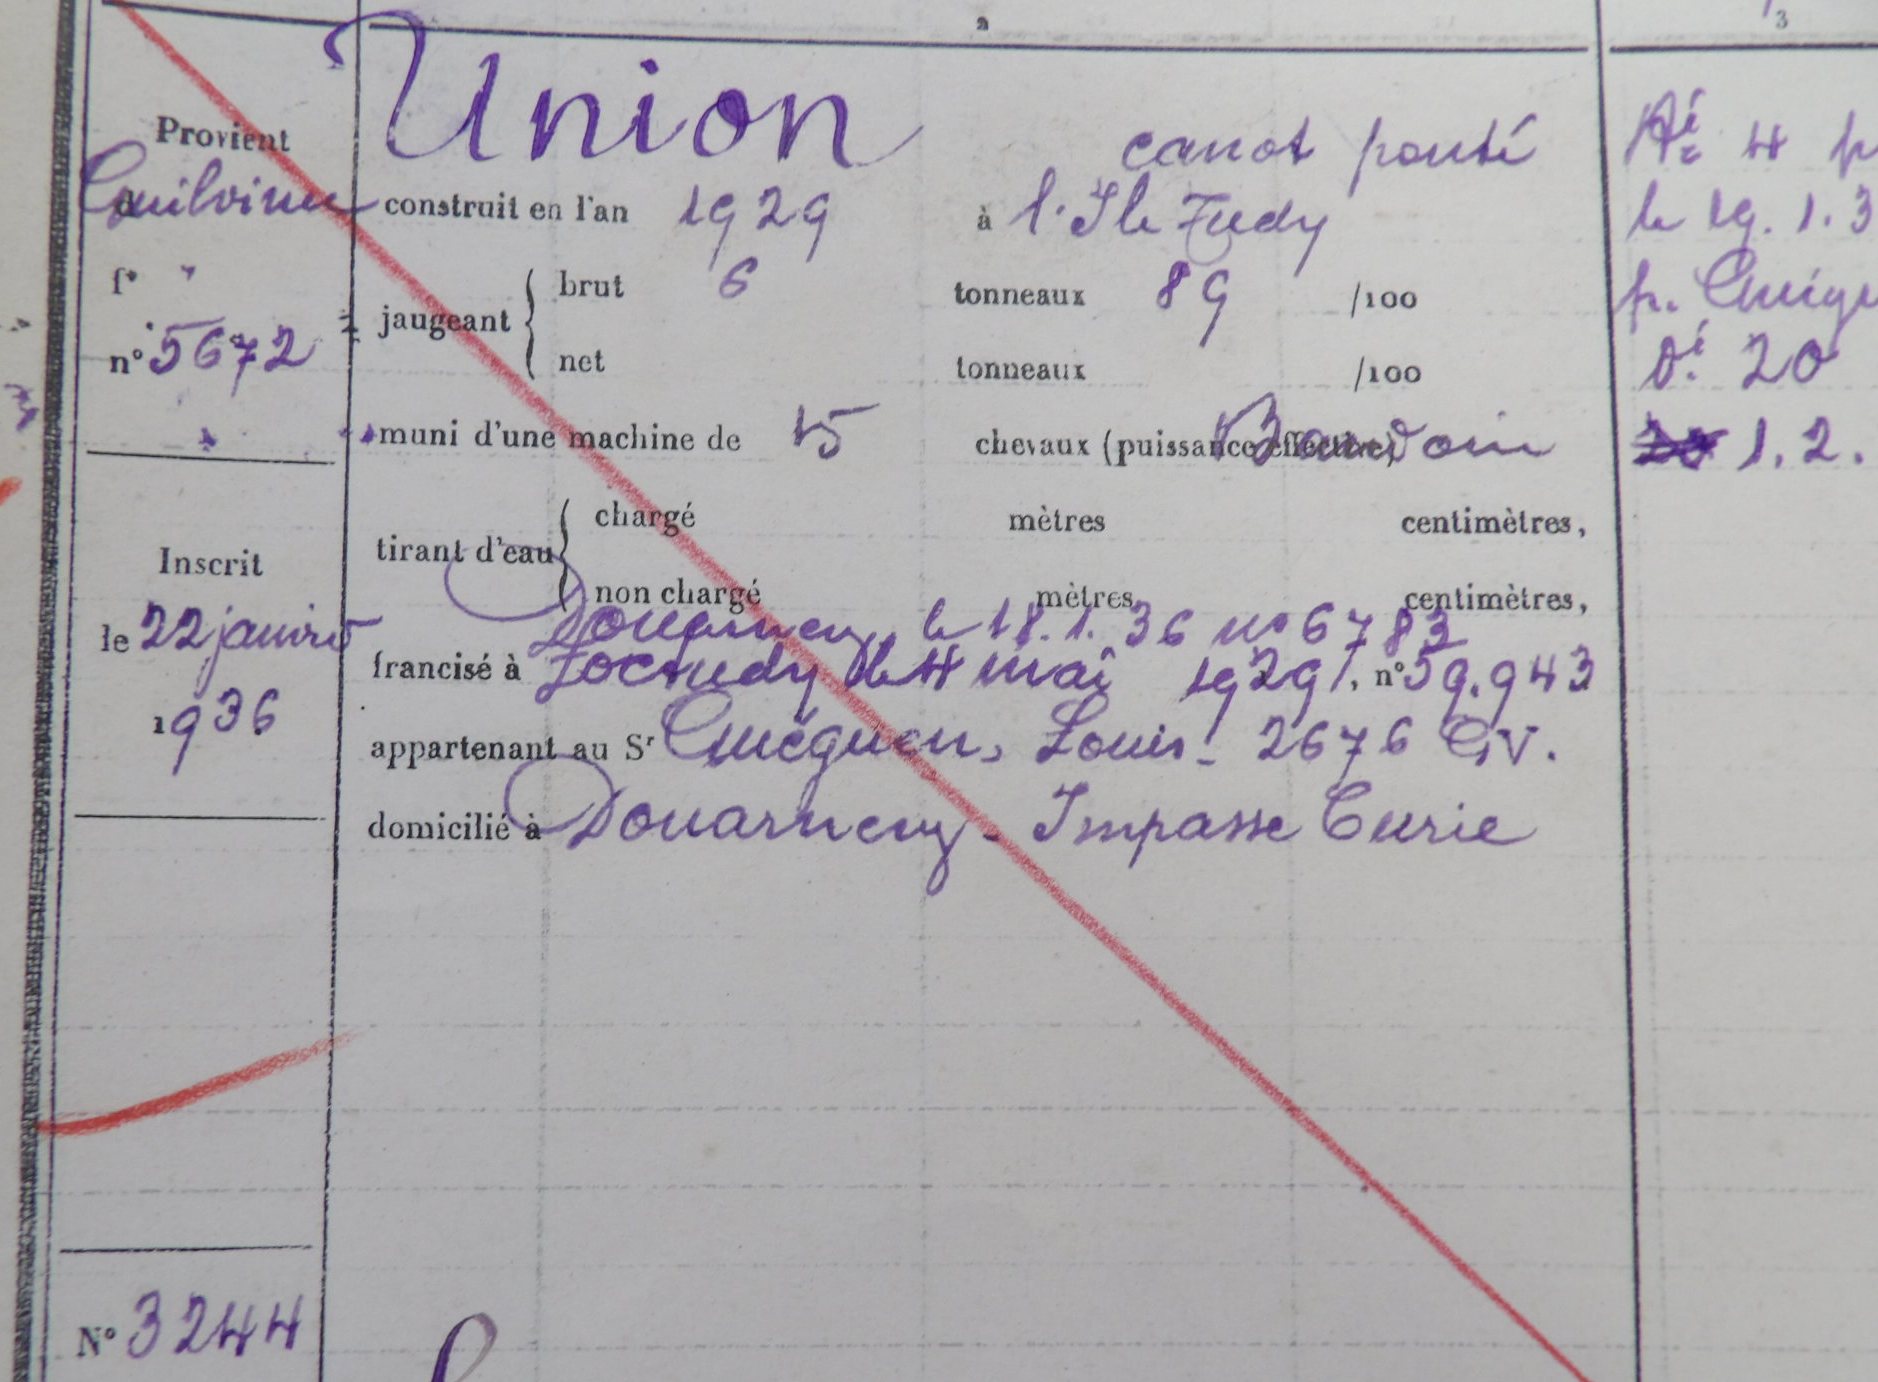 2
3
Provient
Union
canot ponté
d Guilvinec
construit en l'an 1929 à l'Ile Tudy
f°
jaugeant
brut 6 tonneaux 89 /100
n° 5672
net tonneaux /100
muni d'une machine de 15 chevaux (puissance effective) Baudoin
tirant d'eau
chargé mètres centimètres,
non chargé mètres centimètres,
Inscrit
le 22 janvier
1936
Douarnenez le 18.1.36 no 6783
francisé à Loctudy le 4 mai 1929, n° 59.943
appartenant au Sr Guéguen, Louis. 2676 GV.
domicilié à Douarnenez - Impasse Curie
N° 3244
Aé 4 p
le 19.1.3
p. Guégu
Dé 20
1.2.